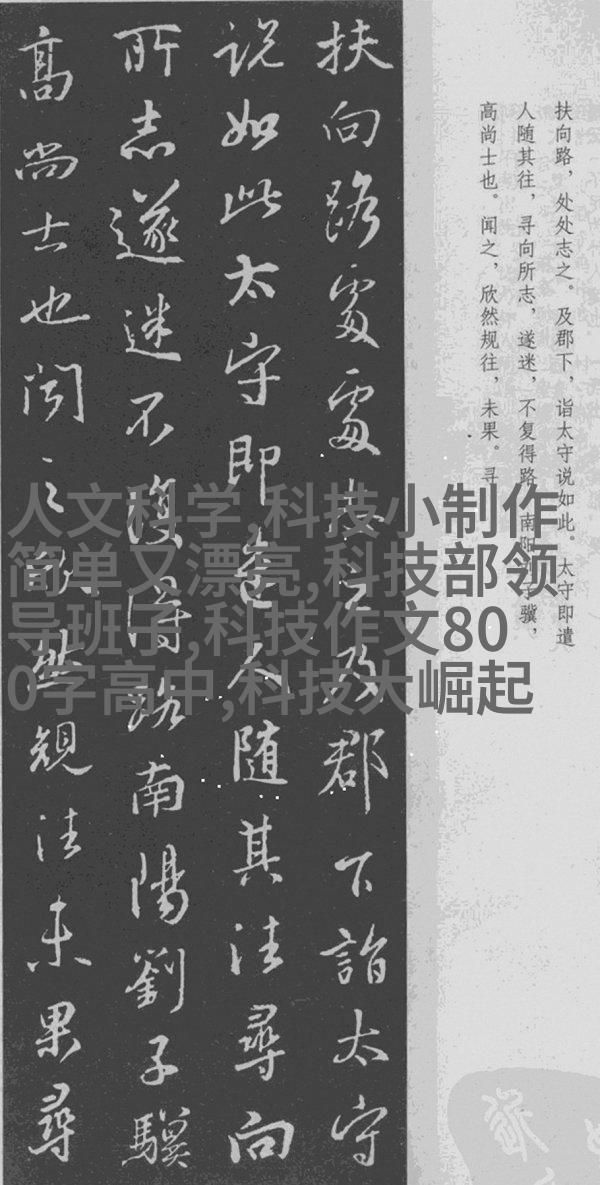 扶向路，处处志之。及郡下，诣太守说如此。太守即遣
人随其往，寻向所志，遂迷，不复得路。南阳刘子骥，
高尚士也。闻之，欣然规往，未果。寻
扶向路處處志之及郡下詣太守
説如此太守即遣人随其往尋向
所志遂迷不復得路南陽劉子驥
高尚士也聞之欣然規往未果尋
人文科学,科技小制作
简单又漂亮,科技部领
导班子,科技作文80
0字高中,科技大崛起